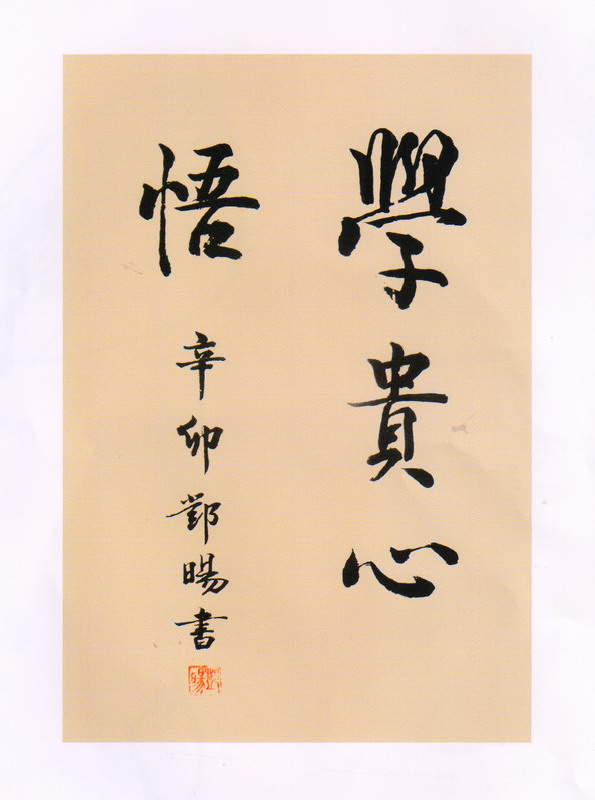 學貴心
悟
辛卯鄧暘書